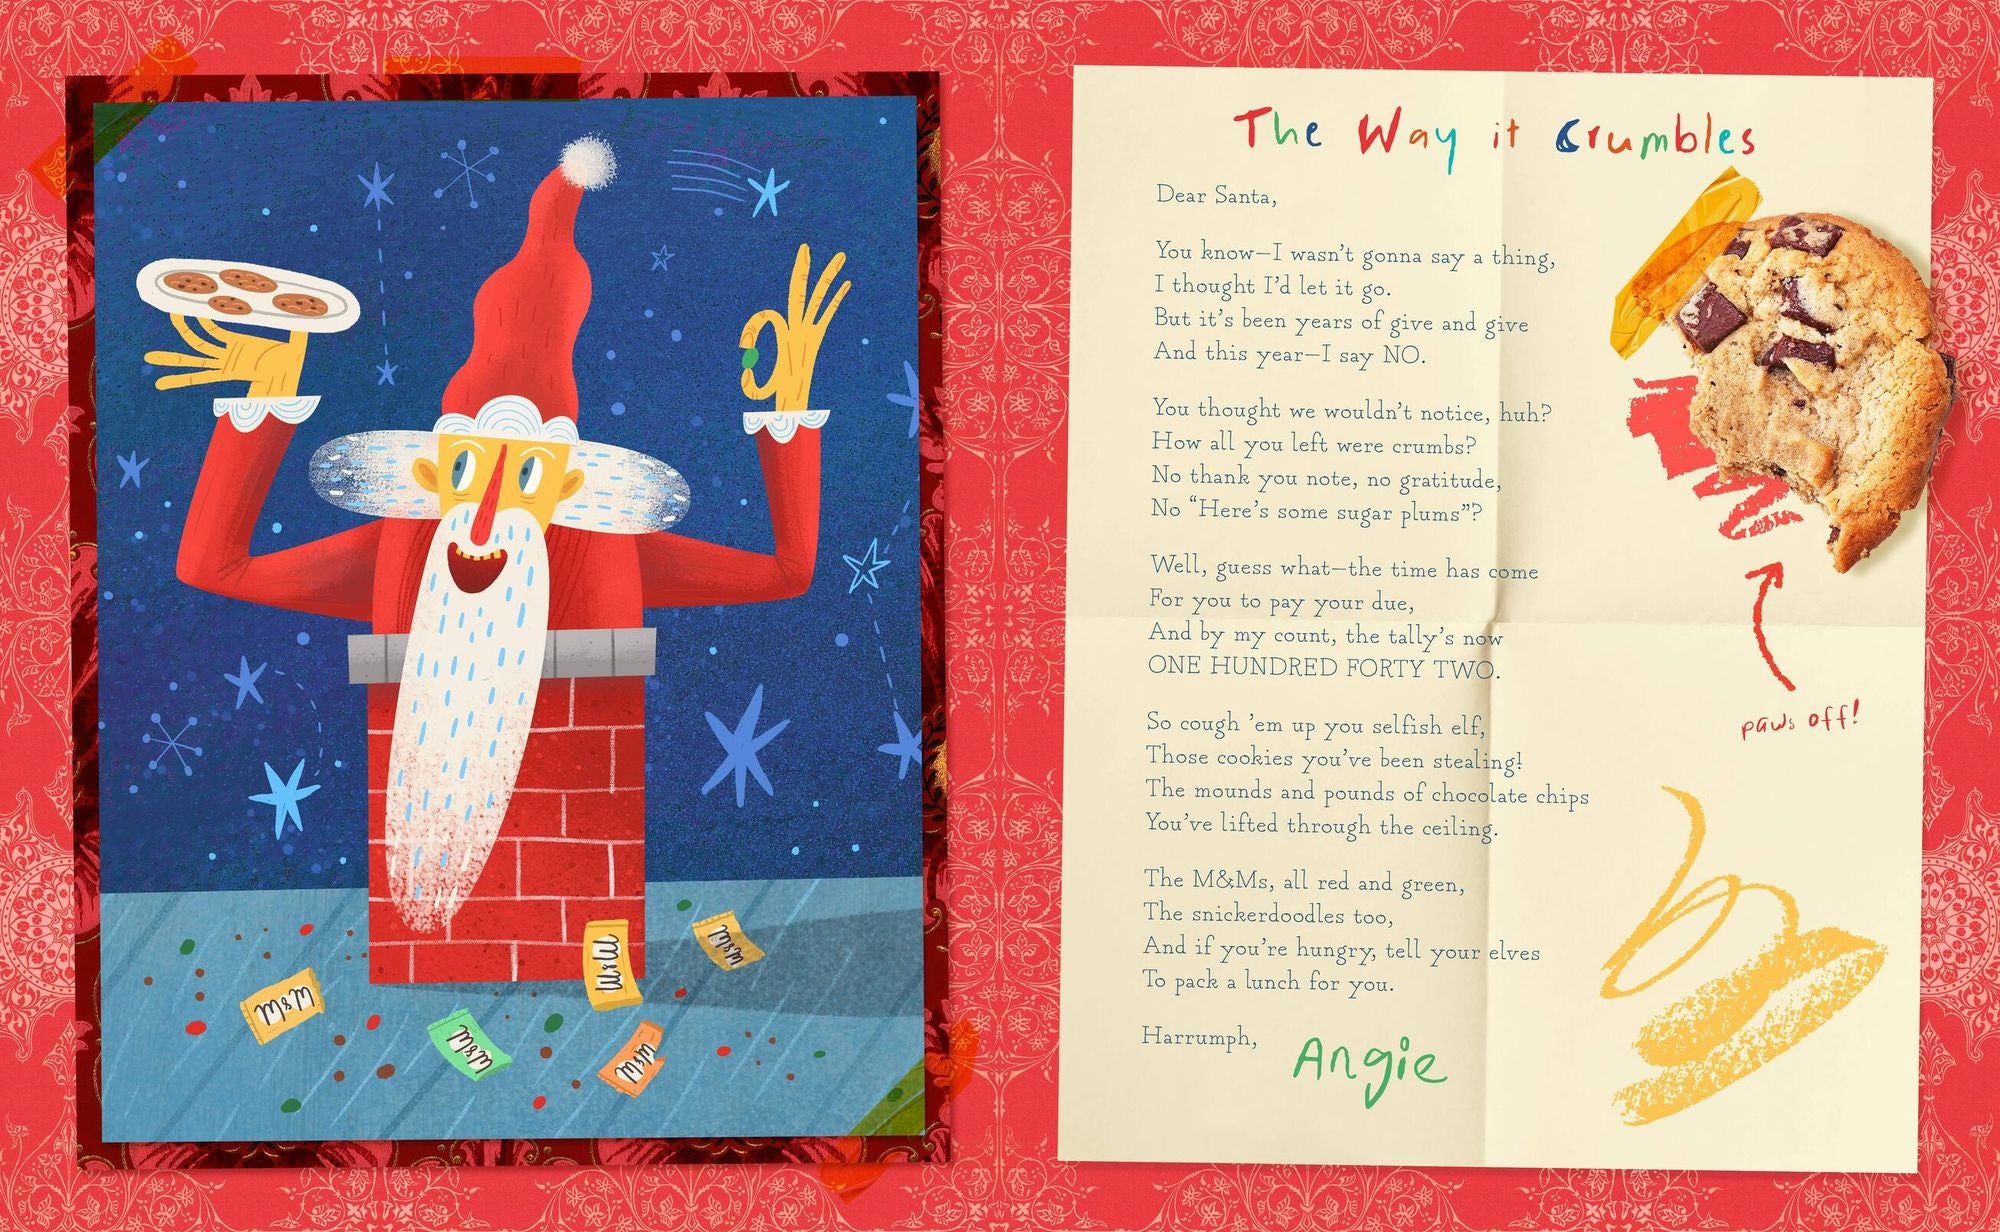 The Way it Crumbles
Dear Santa,
You know—I wasn't gonna say a thing,
I thought I'd let it go.
But it's been years of give and give
And this year—I say NO.
You thought we wouldn't notice, huh?
How all you left were crumbs?
No thank you note, no gratitude,
No “Here's some sugar plums”?
Well, guess what—the time has come
For you to pay your due,
And by my count, the tally's now
ONE HUNDRED FORTY TWO.
So cough 'em up you selfish elf,
Those cookies you've been stealing!
The mounds and pounds of chocolate chips
You've lifted through the ceiling.
The M&Ms, all red and green,
The snickerdoodles too,
And if you're hungry, tell your elves
To pack a lunch for you.
Harrumph,
Angie
paws off!